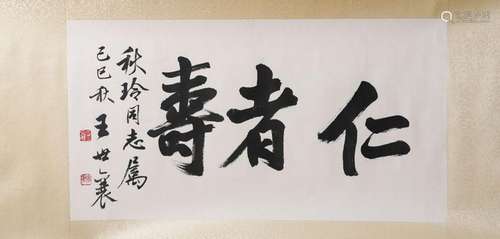 仁者壽
秋玲同志属
己巳秋王世襄